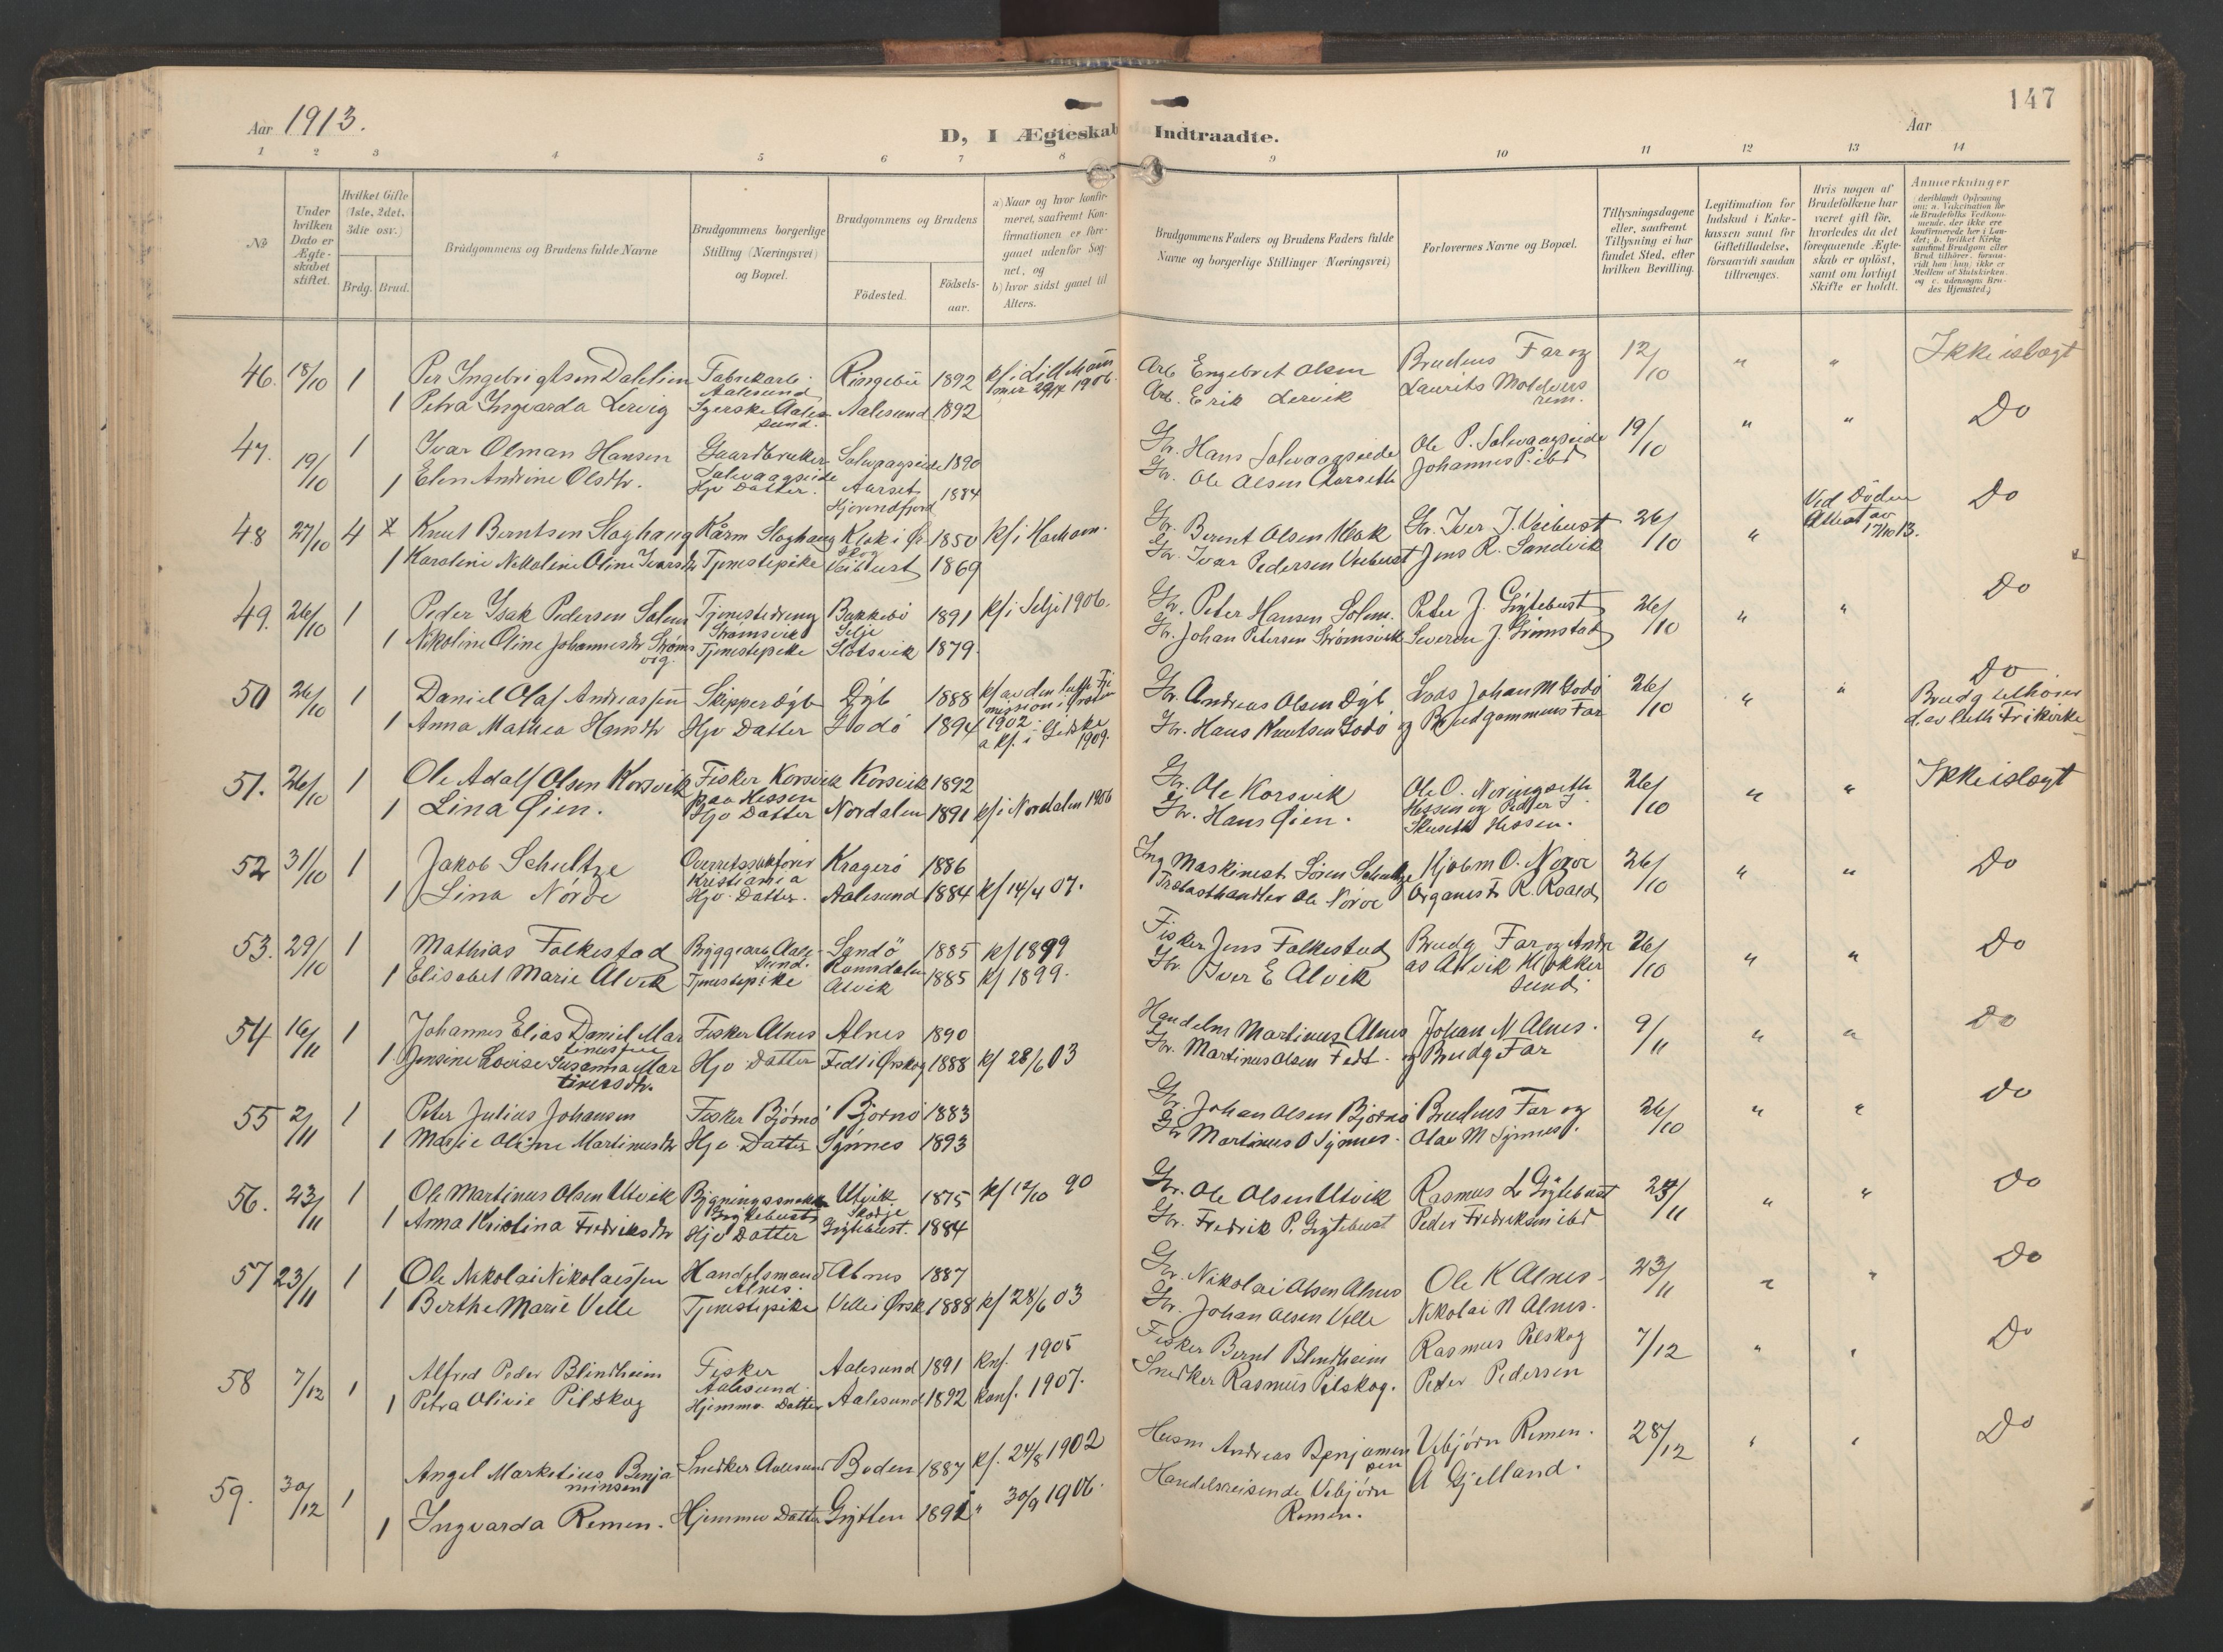 147
Aar 1913.
D, I Ægteskab Indtraadte.
Aar
1 2 3 4 5 6 7 8 9 10 11 12 13 14
No
Under hvilken Dato er Ægteskabet stiftet.
Hvilket Gifte (1ste, 2det, 3die osv.)
Brdg. Brud.
Brudgommens og Brudens fulde Navne
Brudgommens borgerlige Stilling (Næringsvei) og Bopæl.
Brudgommens og Brudens
Födested.
Födselsaar.
a) Naar og hvor konfirmeret, saafremt Konfirmationen er foregaaet udenfor Sognet, og
b) hvor sidst gaaet til Alters.
Brudgommens Faders og Brudens Faders fulde Navne og borgerlige Stillinger (Næringsvei)
Forlovernes Navne og Bopæl.
Tillysningsdagene eller, saafremt Tillysning ei har fundet Sted, efter hvilken Bevilling.
Legitimation for Indskud i Enkekassen samt for Giftetilladelse, forsaavidt saadan tiltrænges.
Hvis nogen af Brudefolkene har været gift för, hvorledes da det foregaaende Ægteskab er oplöst, samt om lovligt Skifte er holdt.
Anmerkninger (deriblandt Oplysning om: a. Vakcination for de Brudefolks Vedkommende, der ikke ere konfirmerede her i Landet; b. hvilket Kirkesamfund Brudgom eller Brud tilhörer, forsaavidt han (hun) ikke er Medlem af Statskirken, og c. udensogns Brudes Hjemsted.)
46. 18/10 1 Per Ingebrigtsen Dahlien Fabrikarb. Aalesund Ringebu 1892 kf i Lillehammer 29/4 1906 Arb Engebret Olsen Brudens Far og 12/10 " " Ikke i slægt
1 Petra Ingvarda Lervig Syerske Aalesund. Aalesund 1892 Arb. Erik Lervik Laurits Moldvær
47. 19/10 1 Ivar Olman Hansen Gaardbruker Solevaagseide Solevaagseide 1890 Gbr. Hans Solevaagseide Ole P. Solevaagseide 19/10 " " Do
1 Elen Andrine Olsdtr. Hjv Datter. Aarset Hjorendfjord 1884 Gbr. Ole Olsen Aarseth Johannes P. ibd
48 27/10 4 x Knut Berntsen Slaghaug Kårm Slaghaug 1850 kf i Haram. Gbr. Bernt Olsen Gbr. Iver J. Veibust 26/10 " Ved Döden Attest av 17/10 13. Do
1 Karoline Nikoline Oline Ivarsdtr Tjenestepike Veibust 1869 Gbr. Ivar Pedersen Veibust Jens R. Sandvik
49. 26/10 1 Peder Isak Pedersen Solem Tjenestedreng Strømsvik Bakkebö Selje 1891 kf i Selje 1906. Gbr. Peter Hansen Solem. Peter J. Gjytebust 26/10 " " Do
1 Nikoline Oline Johannesdtr Strømsvig. Tjenestepike Slotsvik 1879. Gbr. Johan Petersen Strømsvik Severin J. Grimstad
50 26/10 1 Daniel Olaf Andreassen Skipper Dyb Dyb 1888 kf av den luth Frimission i 1902. Gbr. Andreas Olsen Dyb Lods Johan M Godö 26/10 " " Do Brudg tilhører d. ev luth Frikirke
1 Anna Mathea Hansdtr Hjv Datter Godö 1894 a kf. i Giske 1909. Gbr. Hans Knutsen Godö og Brudgommens Far
51. 26/10 1 Ole Adolf Olsen Korsvik Fisker Korsvik Korsvik 1892 Gbr. Ole Korsvik Ole O. Neringseth 26/10 " " Ikke i slægt
1 Lina Øien. Hjv Datter Nordalen 1891 kf i Nordalen 1906 Gbr. Hans Øien. Hessen og Peder J. Skuseth Hessen.
52 31/10 1 Jakob Schultze Overretssakfører Kristiania Kragerö 1886 Maskinest Sören Schultze Hjalm O. Nörve 26/10 " " Do
1 Lina Nörve Hjv. Datter. Aalesund 1884 kf 14/4 07. Trelasthandler Ole Nörve Organist R. Roald
53. 29/10 1 Mathias Falkestad Bryggearb Aalesund. Sandö 1885 kf 1899 Fisker Jens Falkestad Brudg Far og Andr 26/10 " " Do
1 Elisabet Marie Alvik Tjenestepike Romsdalen Alvik 1885 kf 1899. Gbr. Iver E Alvik as Alvik Klokkersund.
54 16/11 1 Johannes Elias Daniel Martinussen Fisker Alnes Alnes 1890 Handelm Martinus Alnes Johan N Alnes. 9/11 " " Do
1 Jensine Lovise Susanna Martinusdtr. Hjv Datter Fedt i Ørskog 1888 kf 28/6 03 Gbr. Martinus Olsen Fedt. og Brudg Far
55 2/11 1 Peter Julius Johansen Fisker Björnö Björnö 1883 Gbr. Johan Olsen Björnö Brudens Far og 26/10 " " Do
1 Marie Oline Martinusdtr Hjv. Datter Synnes 1893 Gbr Martinus O Synnes. Olav M Synnes.
56. 23/11 1 Ole Martinus Olsen Utvik Bygningssnekker Gjytebust Utvik Skodje 1875 kf 12/10 90 Gbr. Ole Olsen Utvik Rasmus L Gjytebust 23/11 " " Do
1 Anna Kristina Fredriksdtr Hjv Datter Gjytebust. 1884 Gbr. Fredrik P. Gjytebust Peder Fredriksen ibd
57 23/11 1 Ole Nikolai Nikolaisen Handelsmand Alnes. Alnes 1887 Gbr. Nikolai Olsen Alnes Ole K Alnes 23/11 " " Do
1 Berthe Marie Velle Tjenestepike Velle i Ørsk 1888 kf 28/6 03 Gbr. Johan Olsen Velle Nikolai N Alnes.
58 7/12 1 Alfred Peder Blindheim Fisker Aalesund Aalesund 1891 Knf. 1905 Fisker Bernt Blindheim Rasmus Pilskog 7/12 " " Do
1 Petra Olivie Pilskog Hjemmev. Datter Aalesund 1892 Konf. 1907. Snedker Rasmus Pilskog. Peder Pedersen
59. 30/12 1 Angel Markitius Benjaminsen Snedker Aalesund Boden 1887 kf. 24/8 1902 Husm Andreas Benjaminsen Vebjörn Remen. 28/12 " " Do
1 Ingvarda Remen. Hjemmev Datter Grytten 1891 " 30/9 1906. Handelsreisende Vebjörn Remen. A Gjelland.